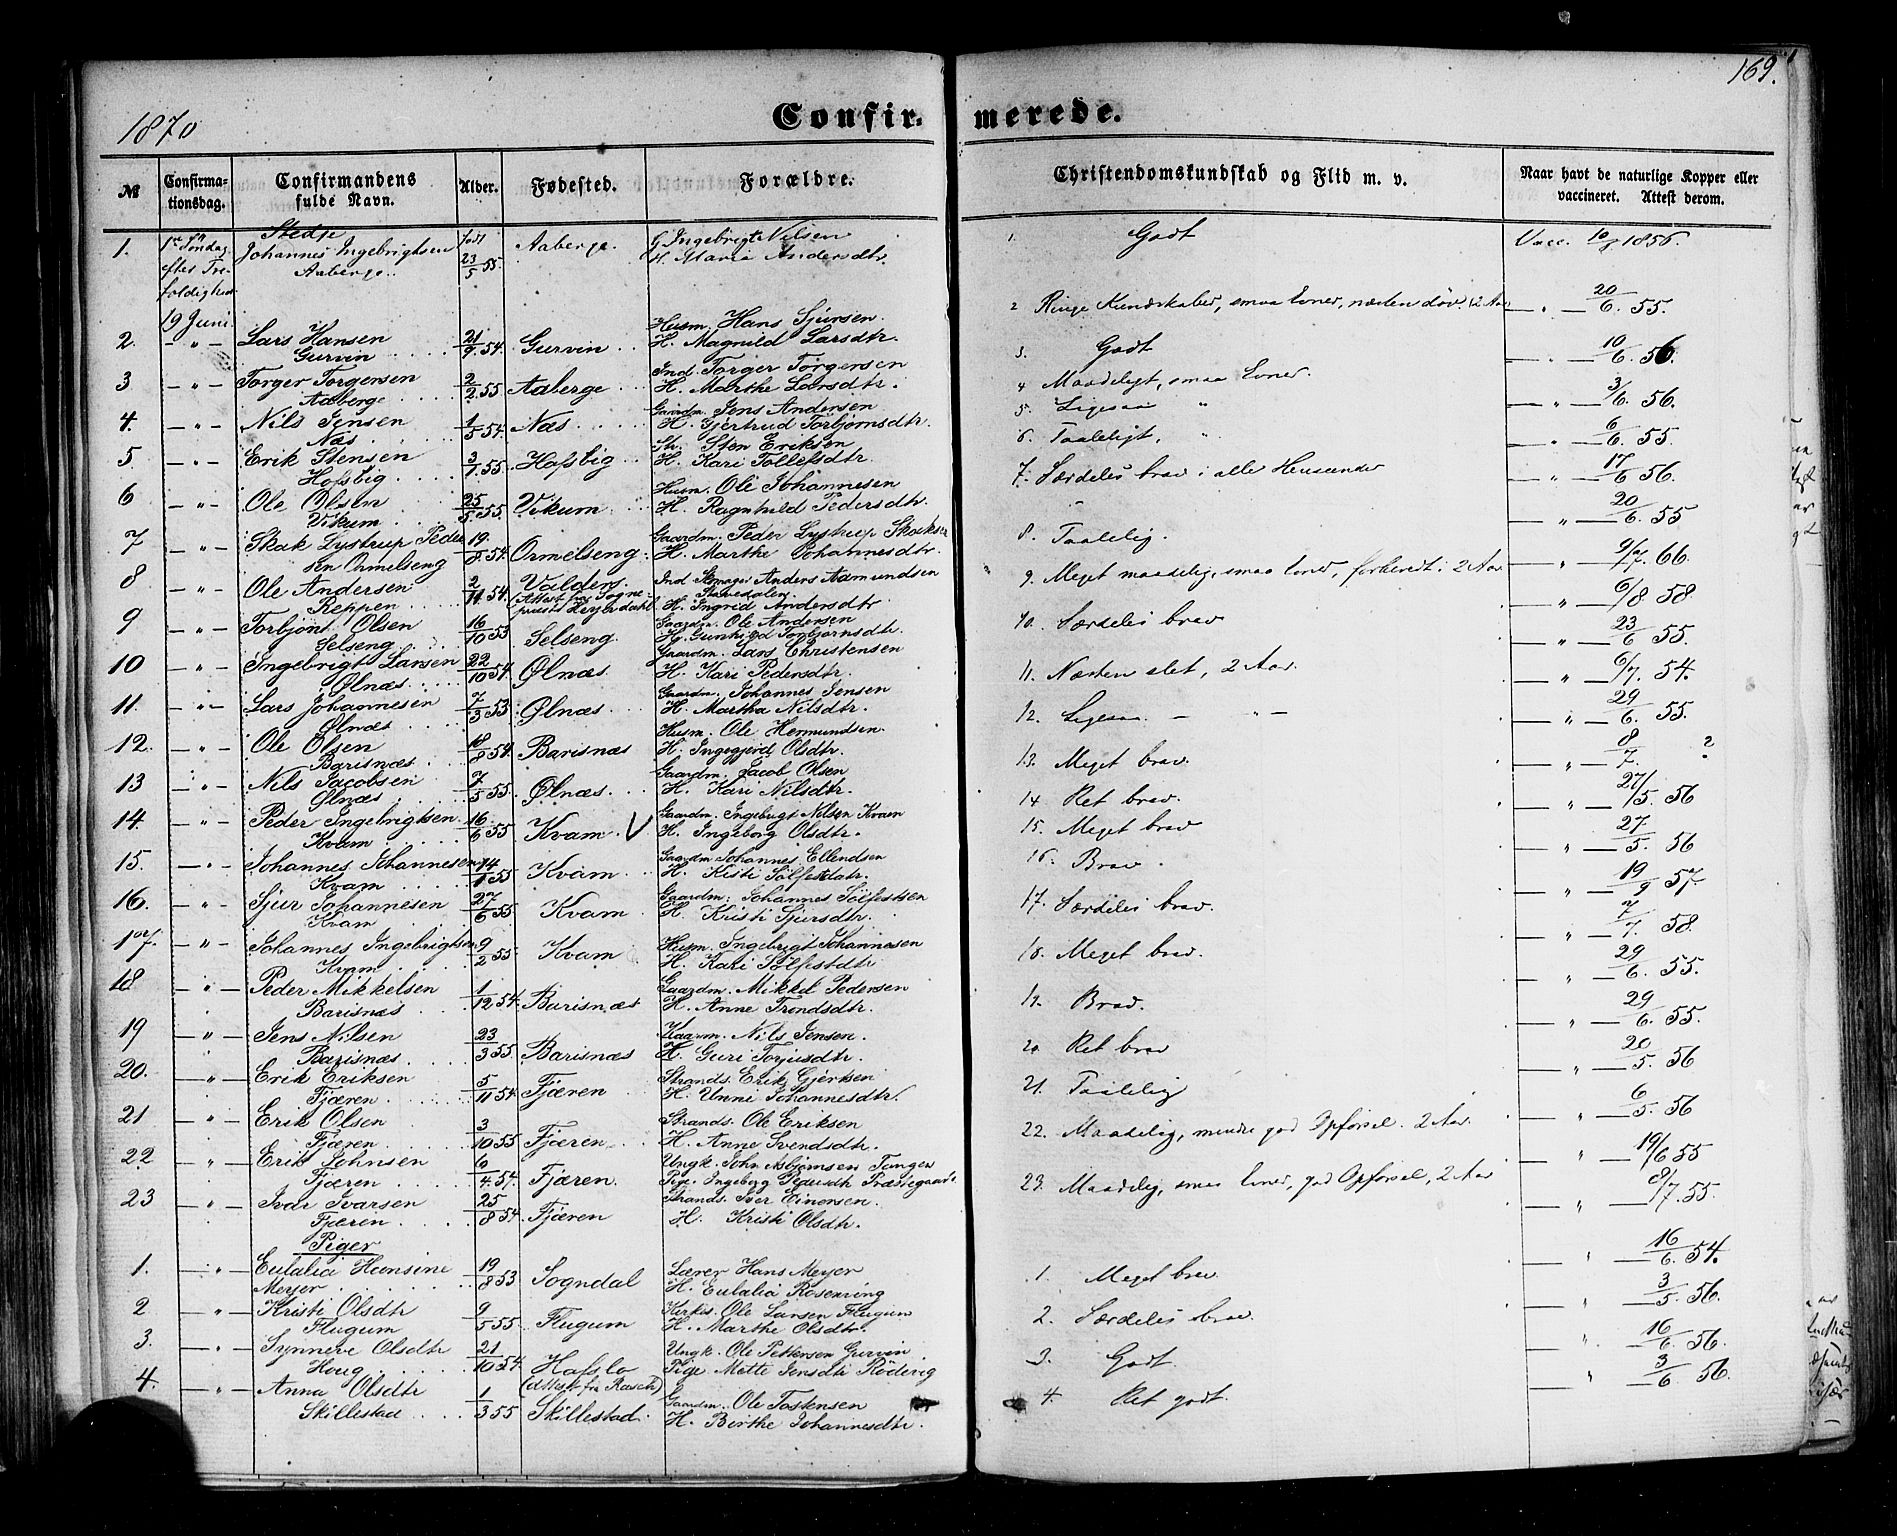 169.
1870
Confirmerede.
№ Confirmationsdag. Confirmandens fulde Navn. Alder. Fødested. Forældre. Christendomskundskab og Flid m. v. Naar havt de naturlige Kopper eller vaccineret. Attest derom.
Stedje
1. 1ste Søndag efter Trefoldighed 19 Juni. Johannes Ingebrigtsen Aaberge født 23/5 55 Aaberge. G. Ingebrigt Nilsen H. Maria Andersdtr. 1. Godt Vacc. 10/8 1856.
2. — " — Lars Hansen Gurvin 21/9 54. Gurvin Husm. Hans Sjursen H. Magnild Larsdtr. 2 Ringe Kundskaber, smaa Evner, næsten døv. 12 Aar — " — 20/6. 55.
3 — " — Torger Torgersen Aaberge 2/2 55 Aaberge Ind. Torger Torgersen H. Marthe Larsdtr. 3. Godt — " — 10/6. 56.
4. — " — Nils Jensen Næs 1/5 54. Næs Gaardm. Jens Andersen H. Gjertrud Torbjørnsdtr. 4 Maadeligt, smaa Evner. — " — 3/6. 56.
5 — " — Erik Stensen Hofsbig 3/1 55. Hafsbig Str. Sten Eriksen H. Kari Tollefsdtr. 5. Ligesaa " — " — 6/6. 55.
6 — " — Ole Olsen Vikum 25/5 55 Vikum Husm. Ole Johannesen H. Ragnhild Pedersdtr. 6. Taaleligt, " — " — 17/6 56.
7 — " — Skak Lystrup Pedersen Ormelseng 19/8 54. Ormelseng Gaardm. Peder Lystrup Skaksen H. Marthe Johannesdtr. 7. Særdeles brav i alle Hensender — " — 20/6. 55
8 — " — Ole Andersen Reppen 2/11 54. Valders. (Attest fra Sognepræst Heyerdahl Ind. Anders Aamundsen H. Ingrid Andersdtr 8. Taalelig. — " — 9/7. 66
9 — " — Torbjønt Olsen Selseng 16/10 53 Selseng. Gaardm. Ole Andersen H. Gunhild Torbjørnsdtr. 9. Meget maadelig, smaa Evner, forberedt i 2 Aar — " — 6/8. 58
10 — " — Ingebrigt Larsen Ølnæs 22/10 54. Ølnæs Gaardm. Lars Christensen H. Kari Pedersdtr. 10. Særdeles brav — " — 23/6 55.
11. — " — Lars Johannesen Ølnæs 7/3 53 Ølnæs. Gaardm. Johannes Jensen H. Martha Nilsdtr. 11. Næsten slet, 2 Aar. — " — 6/7. 54.
12. — " — Ole Olsen Barisnæs 18/8 54. Barisnæs Husm. Ole Hermundsen. H. Ingegjerd Olsdtr. 12. Ligesaa. — " — — " — 29/6. 55.
13 — " — Nils Jacobsen Ølnæs 7/5 55. Ølnæs. Gaardm. Jacob Olsen H. Kari Nilsdtr. 13. Meget brav. — " — 8/7. ?
14. — " — Peder Ingebrigtsen Kvam 16/6 55 Kvam. V Gaardm. Ingebrigt Nilsen Kvam H. Ingeborg Olsdtr. 14 Ret brav. — " — 27/5. 56
15. — " — Johannes Johannesen Kvam 14/1 55 Kvam Gaardm Johannes Ellendsen H. Kisti Sølfestdatr. 15. Meget brav — " — 27/5. 56
16. — " — Sjur Johannesen Kvam 27/6 55 Kvam Gaardm: Johannes Sølfestsen H. Kristi Sjursdtr. 16. Brav. — " — 19/9 57.
17. — " — Johannes Ingebrigtsen Kvam 9/2 55 Kvam Husm. Ingebrigt Johannesen H. Kari Sølfestdtr 17. Særdeles brav. — " — 7/7. 58
18 — " — Peder Mikkelsen Barisnæs 1/12 54. Barisnæs Gaardm. Mikkel Pedersen H. Anne Trondsdtr. 18. Meget brav. — " — 29/6. 55.
19 — " — Jens Nilsen Barisnæs 23/3 55. Barisnæs Kaarm. Nils Jensen. H. Guri Torjusdtr. 19. Brav. — " — 29/6. 55.
20. — " — Erik Eriksen Fjæren 5/11 54 Fjæren Strands. Erik Gjertsen H. Unni Johannesdtr. 20 Ret brav — " — 20/5. 56
21 — " — Erik Olsen Fjæren 3/10 55 Fjæren Strands. Ole Eriksen H. Anne Svendsdtr. 21. Taalelig — " — 6/5. 56
22 — " — Erik Johnsen Fjæren 6/4 54. Fjæren. Ungk. John Asbjørnsen Tangen Pige. Ingeborg Pedersdtr Præstegaard. 22. Maadelig, mindre god Opførsel. 2 Aar. — " — 19/6 55
23 — " — Ivar Ivarsen Fjæren 25/8 54. Fjæren Strands. Iver Einersen. H. Kristi Olsdtr. 23. Maadelig, smaa Evner, god Opførsel, 2 Aar — " — 8/7. 55.
Piger
1. — " — Eulalia Hansine Meyer 19/8 53 Sogndal Lærer Hans Meyer H. Eulalia Rosenring 1. Meget brav. " — 16/6. 54.
2 — " — Kristi Olsdtr Flugum 9/5 55 Flugum Kirkes. Ole Larsen Flugum H. Marthe Olsdtr. 2. Særdeles brav. " — 3/5. 56.
3. — " — Synneve Olsdtr Houg 21/10 54 Hafslo (Attest fra Rasch) Ungk. Ole Pettersen Gurvin Pige Mette Jensdtr Rödevig 3. Godt. " — 16/6. 56.
4. — " — Anna Olsdtr Skillestad 1/3 55 Skillestad. Gaardm. Ole Tostensen H. Berthe Johannesdtr. 4. Ret godt. " — 3/6 56.